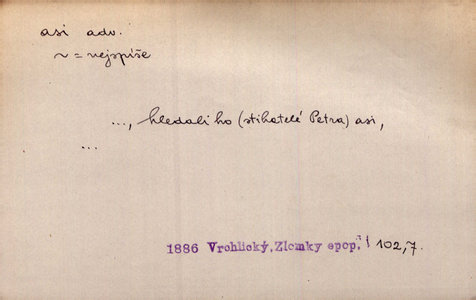 asi adv.
~ = nejspíše
..., hledali ho (stihatelé Petra) asi,
...
1886 Vrchlický, Zlomky epop. 102,7.